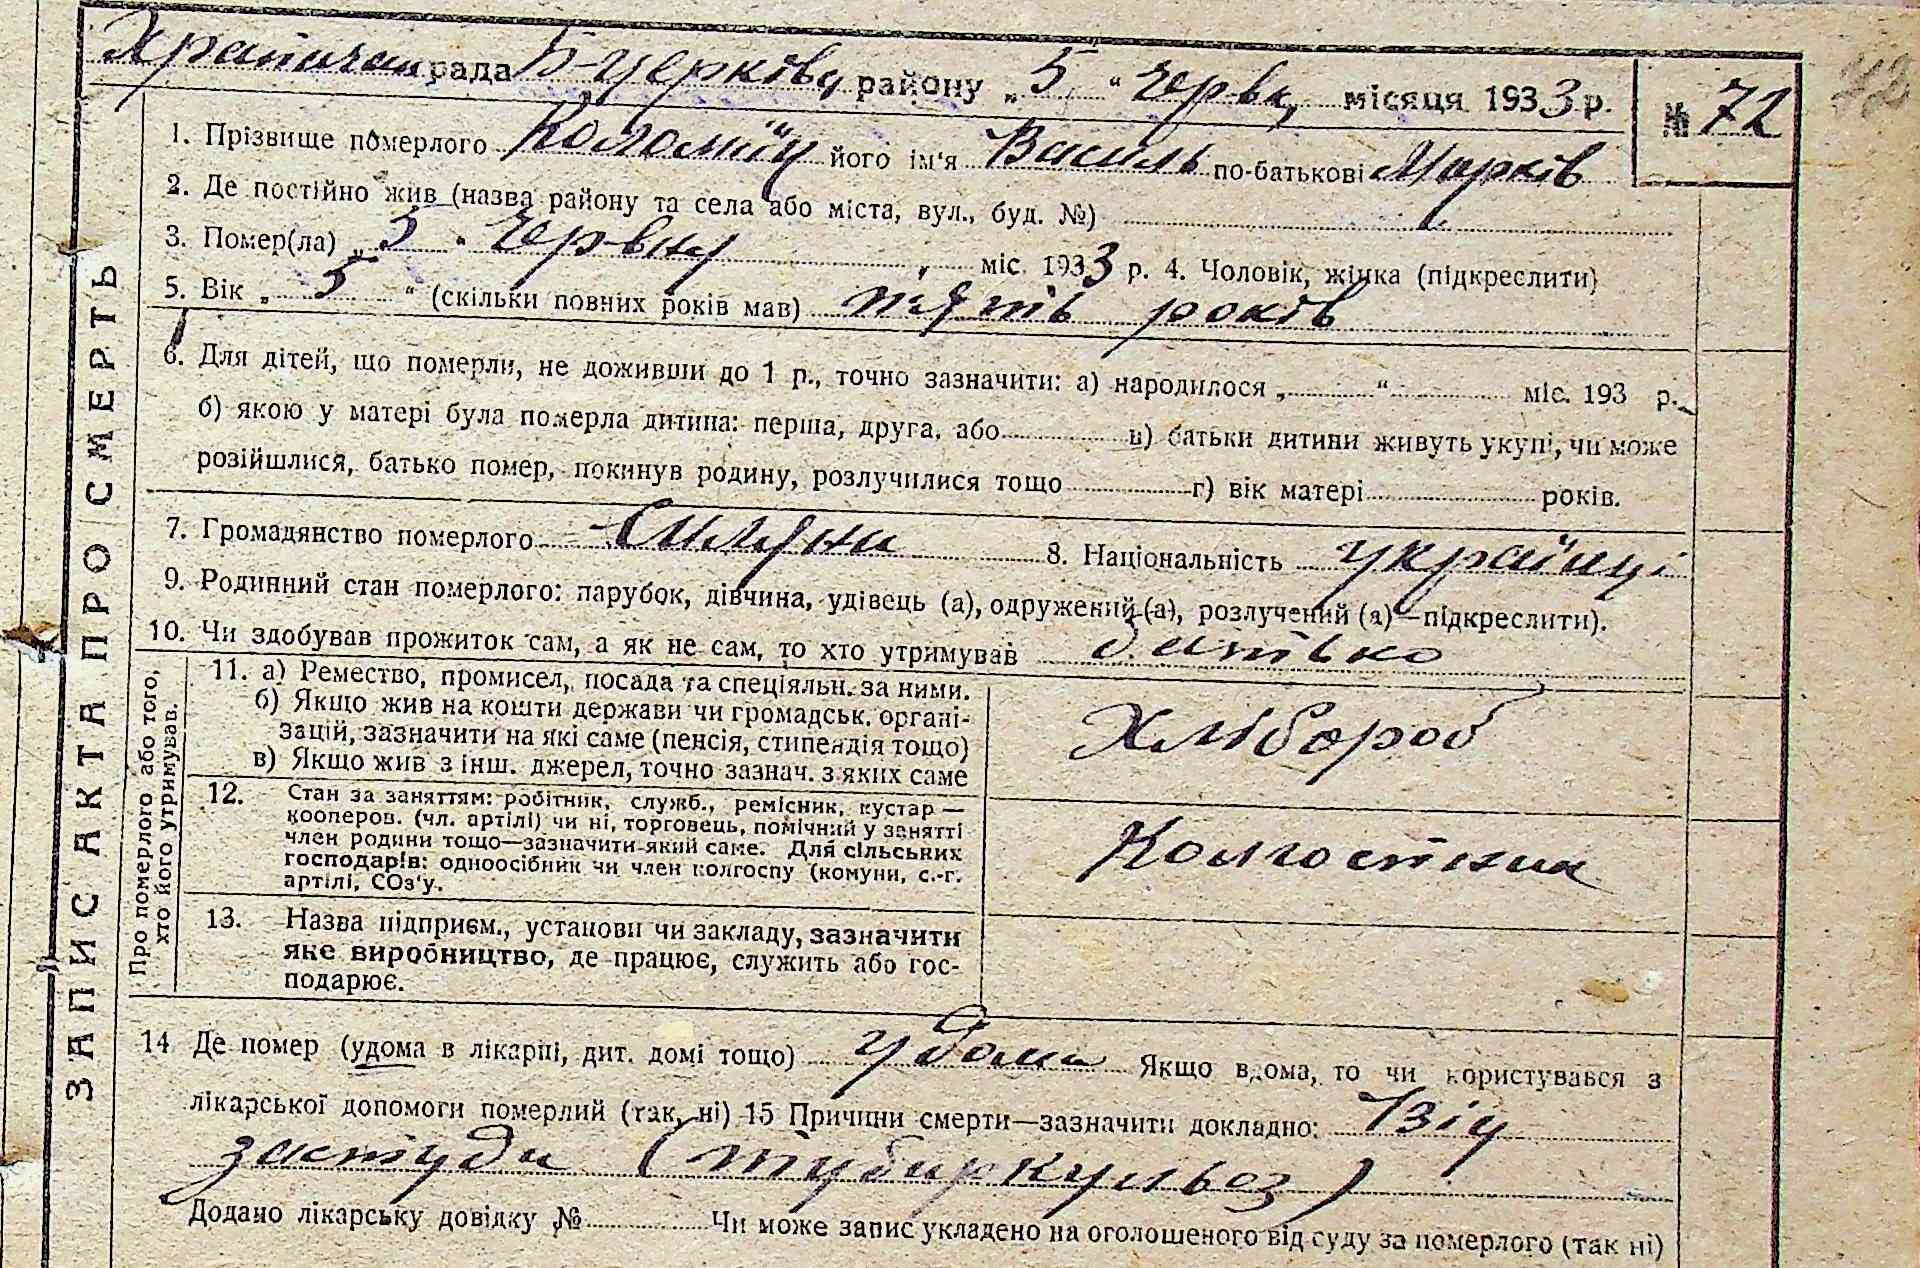 Храпачан рада Б-Церківс, району „ 5 “ Червн, місяця 1933 р.
№ 72
72
1. Прізвище померлого Коломієць його ім'я Василь по-батькові Марків
2. Де постійно жив (назва району та села або міста, вул., буд. №)
3. Помер(ла) „ 5 “ Червня, міс. 1933 р. 4. Чоловік, жінка (підкреслити)
5. Вік „ 5 “ (скільки повних років мав) п'ять років
6. Для дітей, що померли, не доживши до 1 р., точно зазначити: а) народилося „ “ міс. 193 р.
б) якою у матері була померла дитина: перша, друга, або в) батьки дитини живуть укупі, чи може
розійшлися, батько помер, покинув родину, розлучилися тощо г) вік матері років.
7. Громадянство померлого 8. Національність українці
9. Родинний стан померлого: парубок, дівчина, удівець (а), одружений (а), розлучений (а)—підкреслити).
10. Чи здобував прожиток сам, а як не сам, то хто утримував батько
ЗАПИС АКТА ПРО СМЕРТЬ
Про померлого або того,
хто його утримував.
11. а) Ремество, промисел, посада та спеціяльн. за ними.
б) Якщо жив на кошти держави чи громадськ. органі-
зацій, зазначити на які саме (пенсія, стипендія тощо)
в) Якщо жив з інш. джерел, точно зазнач. з яких саме
Хлібороб
12. Стан за заняттям: робітник, служб., ремісник, кустар—
кооперов. (чл. артілі) чи ні, торговець, помічний у занятті
член родини тощо—зазначити який саме. Для сільських
господарів: одноосібник чи член колгоспу (комуни, с.-г.
артілі, СОз'у.
Колгостник
13. Назва підприєм., установи чи закладу, зазначити
яке виробництво, де працює, служить або гос-
подарює.
14 Де помер (удома в лікарні, дит. домі тощо) удома Якщо вдома, то чи користувався з
лікарської допомоги померлий (так, ні) 15 Причини смерти—зазначити докладно: Ізіу
застуди (тубиркульоз)
Додано лікарську довідку № Чи може запис укладено на оголошеного від суду за померлого (так ні)